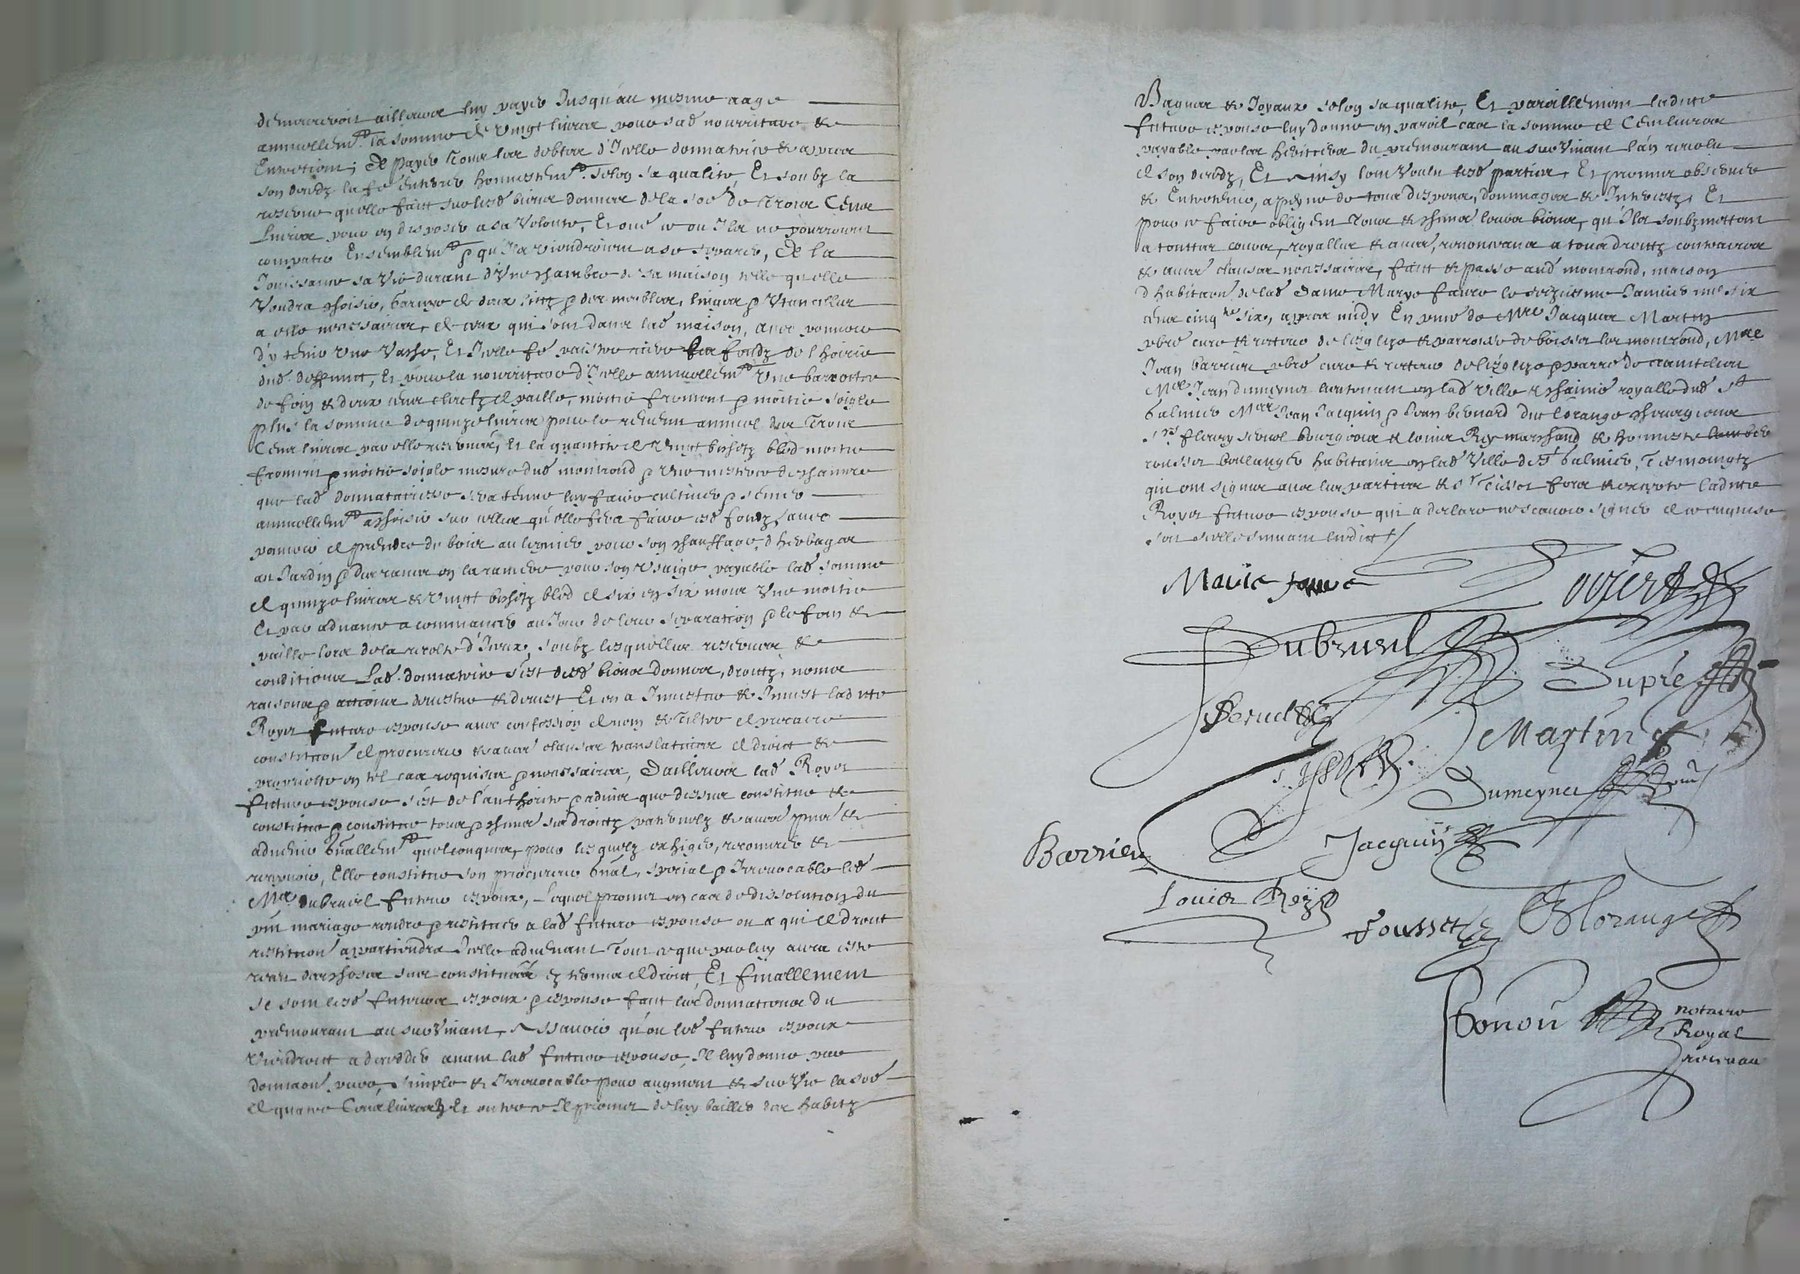 demeureroit ailleurs luy payer Jusqu'au mesme aage
annuellemt la somme de vingt livres pour sad nourriture &
Entretient, de payer tous les debtes d'Icelle donnatrice & apres
son deceds la fe enterrer honnestemt selon sa qualité, Et soubz la
reserve qu'elle faict sur lesd biens donnes de la soe de Trois Cens
Livres pour en disposer a sa volonté, Et ou ou Ilz ne pourroient
compatir Ensemblemt & qu'Ilz viendroient a se separer, de la
Jouissance sa vie durant d'Une chambre de sa maison telle qu'elle
Voudra choisir, garnye de deux lictz & des meubles, linges & Utancilles
a elle necessaires, de ceux qui sont dans lad maison, avec pouvoir
d'y tenir Une Vache, Et Icelle fe paistre riere les fondz de l'hoirie
dud. deffunct, Et pour la nourriture d'Icelle annuellemt Une barrottee
de foin & deux cens de paille, moitie froment & moitie soigle
plus la somme de quinze livres pour le revenu annuel des Trois
Cens livres par elle reservés, Et la quantité de Vingt bichetz bled moitie
froment & moitie soigle mesure dud montrond & Une mesterée de chanvre
que lad donnataire sera tenue luy faire cultiver & semer
annuellemt a choisir sur celles qu'elle fera faire esd fondz, avec
pouvoir de prendre du bois au buscher pour son chauffage, d'herbages
au Jardin & des raves en la raviere pour son Usaige payable lad somme
de quinze livres & Vingt bichetz bled de six en six mois Une moitie
Et par advance a commancer au Jour de leur separation & le foin &
paille lors de la recolte d'Iceux, soubz lesquelles reserves &
conditions Lad. donnatrice s'est desd biens donnes, droitz, noms
raisons & actions devestue & devest Et en a Investu & Invest ladite
Royet future espouse avec confession de nom & tiltre de precaire
constitution de procureur & autres clauses translatives de droict &
proprieté en tel cas requises & necessaires, D'ailleurs lad Royet
future espouse s'est de l'authorité & advis que dessus constitue &
constitue & constitue tous & chuns ses droitz paternelz & autres pns &
advenir gnallemt quelconques, pour lesquelz exhiger, recouvrer &
recepvoir, Elle constitue son procureur gnal, special & Irrevocable led
Mre dubrueil futeur espoux, Lequel promet en cas de dissolution du
pnt mariage rendre & restituer a lad future espouse ou a qui de droict
restitution appartiendra Icelle advenant tout ce que par luy aura esté
receu des choses sus constituées ez termes de droict, Et finallement
se sont lesd futeurs espoux & espouse faict les donnations du
premourant au survivant, Assavoir qu'ou led futeur espoux
Viendroit a deceder avant lad future espouse Il luy donne par
donnaon pure, simple & Irrevocable pour augment & survie la soe
de quatre Cens livres Et outre ce Il promet de luy bailler des habitz
Bagues & Joyaux selon sa qualité, Et pareillement ladite
future espouse luy donne en pareil cas la somme de Cent livres
payable par les heritiers du premourant au survivant l'an revolu
de son deceds, Et Ainsy l'ont Voulu lesd parties, Et promis observer
& Entretenir, a peyne de tous despens, dommages & Interestz, Et
pour ce faire obligent tous & chuns leurs biens, qu'Ilz soubzmettent
a touttes cours, royalles & autres, renonceans a tous droictz contraires
& autres clauses necessaires, faict & passé aud montrond, maison
d'habitaon de lad Dame Marye faure le seziesme Janvier mil six
cens cinqte six, apres midy En pnce de Mre Jacques Martin
pbre curé & recteur de l'esglize & parroisse de boisset les montrond, Mre
Jean barrieu pbre curé & recteur de l'esglize & parroe de chambeon
Mre Jean dumeynet lieutenant en lad Ville & chastnie royalle dud St
balmier Mres Jean Jacquin & Jean benoid du lorange chirurgiens
Sr fleury pernel bourgeois & louis Rey marchand & honneste
rousset boullanger habitans en lad Ville de St balmier, Tesmoingtz
qui ont signés avec les parties & fors & excepté ladite
Royet future espouse qui a declaré ne scavoir signer de ce enquise
Marie faure
Dubrueil
Dupré
Martin
Dumeynet
Barrieu
Jacquin
Louis Rey
Rousset
Blorange
notaire
Royal